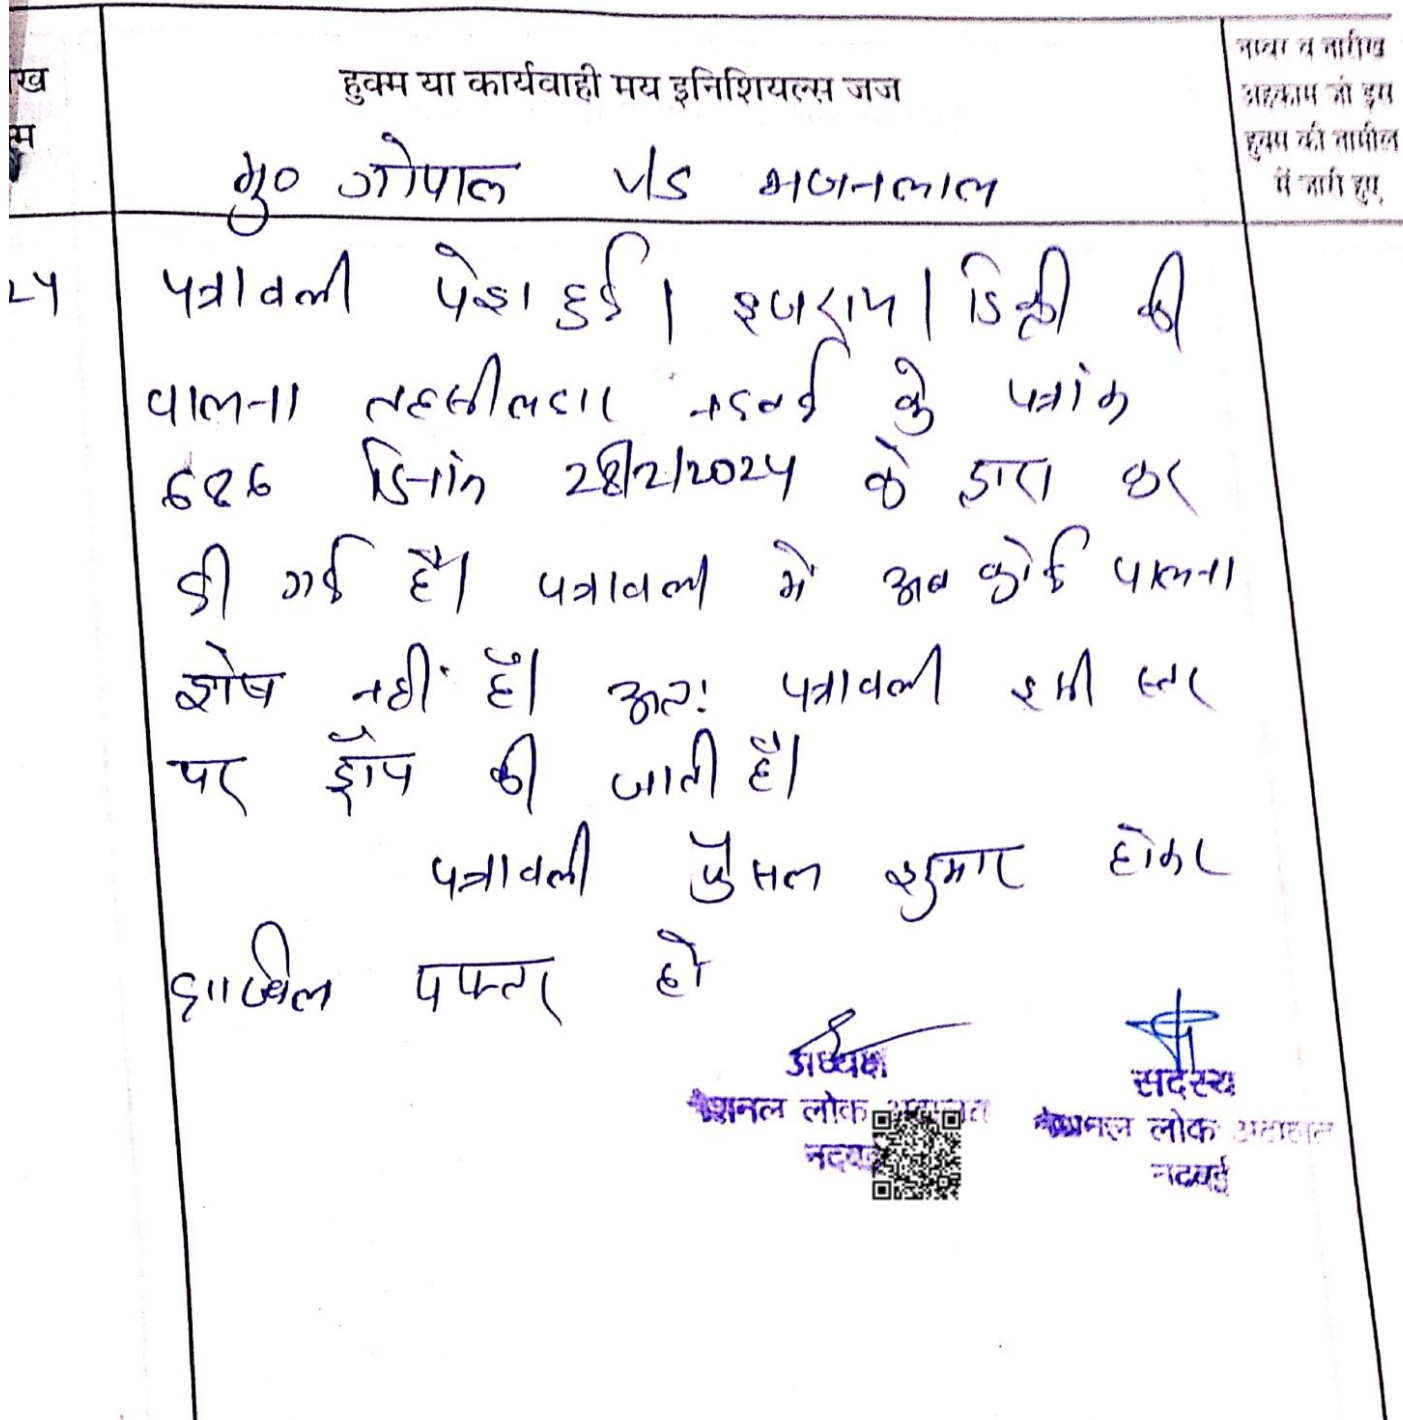 ख
हुक्म या कार्यवाही मय इनिशियल्स जज
नम्बर व तारीख
अहकाम जो इस
हुक्म की तामील
में जारी हुए
म
मु० गोपाल v/s भजनलाल
24
पत्रावली पेश हुई। इजराय। डिक्री की
पालना तहसीलदार नदबई के पत्रांक
686 दिनांक 28/2/2024 के द्वारा कर
दी गई है। पत्रावली में अब कोई पालना
शेष नहीं है। अतः पत्रावली इसी स्तर
पर ड्रॉप की जाती है।
पत्रावली फैसल शुमार होकर
दाखिल दफ्तर हो
अध्यक्ष
नैशनल लोक अदालत
नदबई
सदस्य
नैशनल लोक अदालत
नदबई